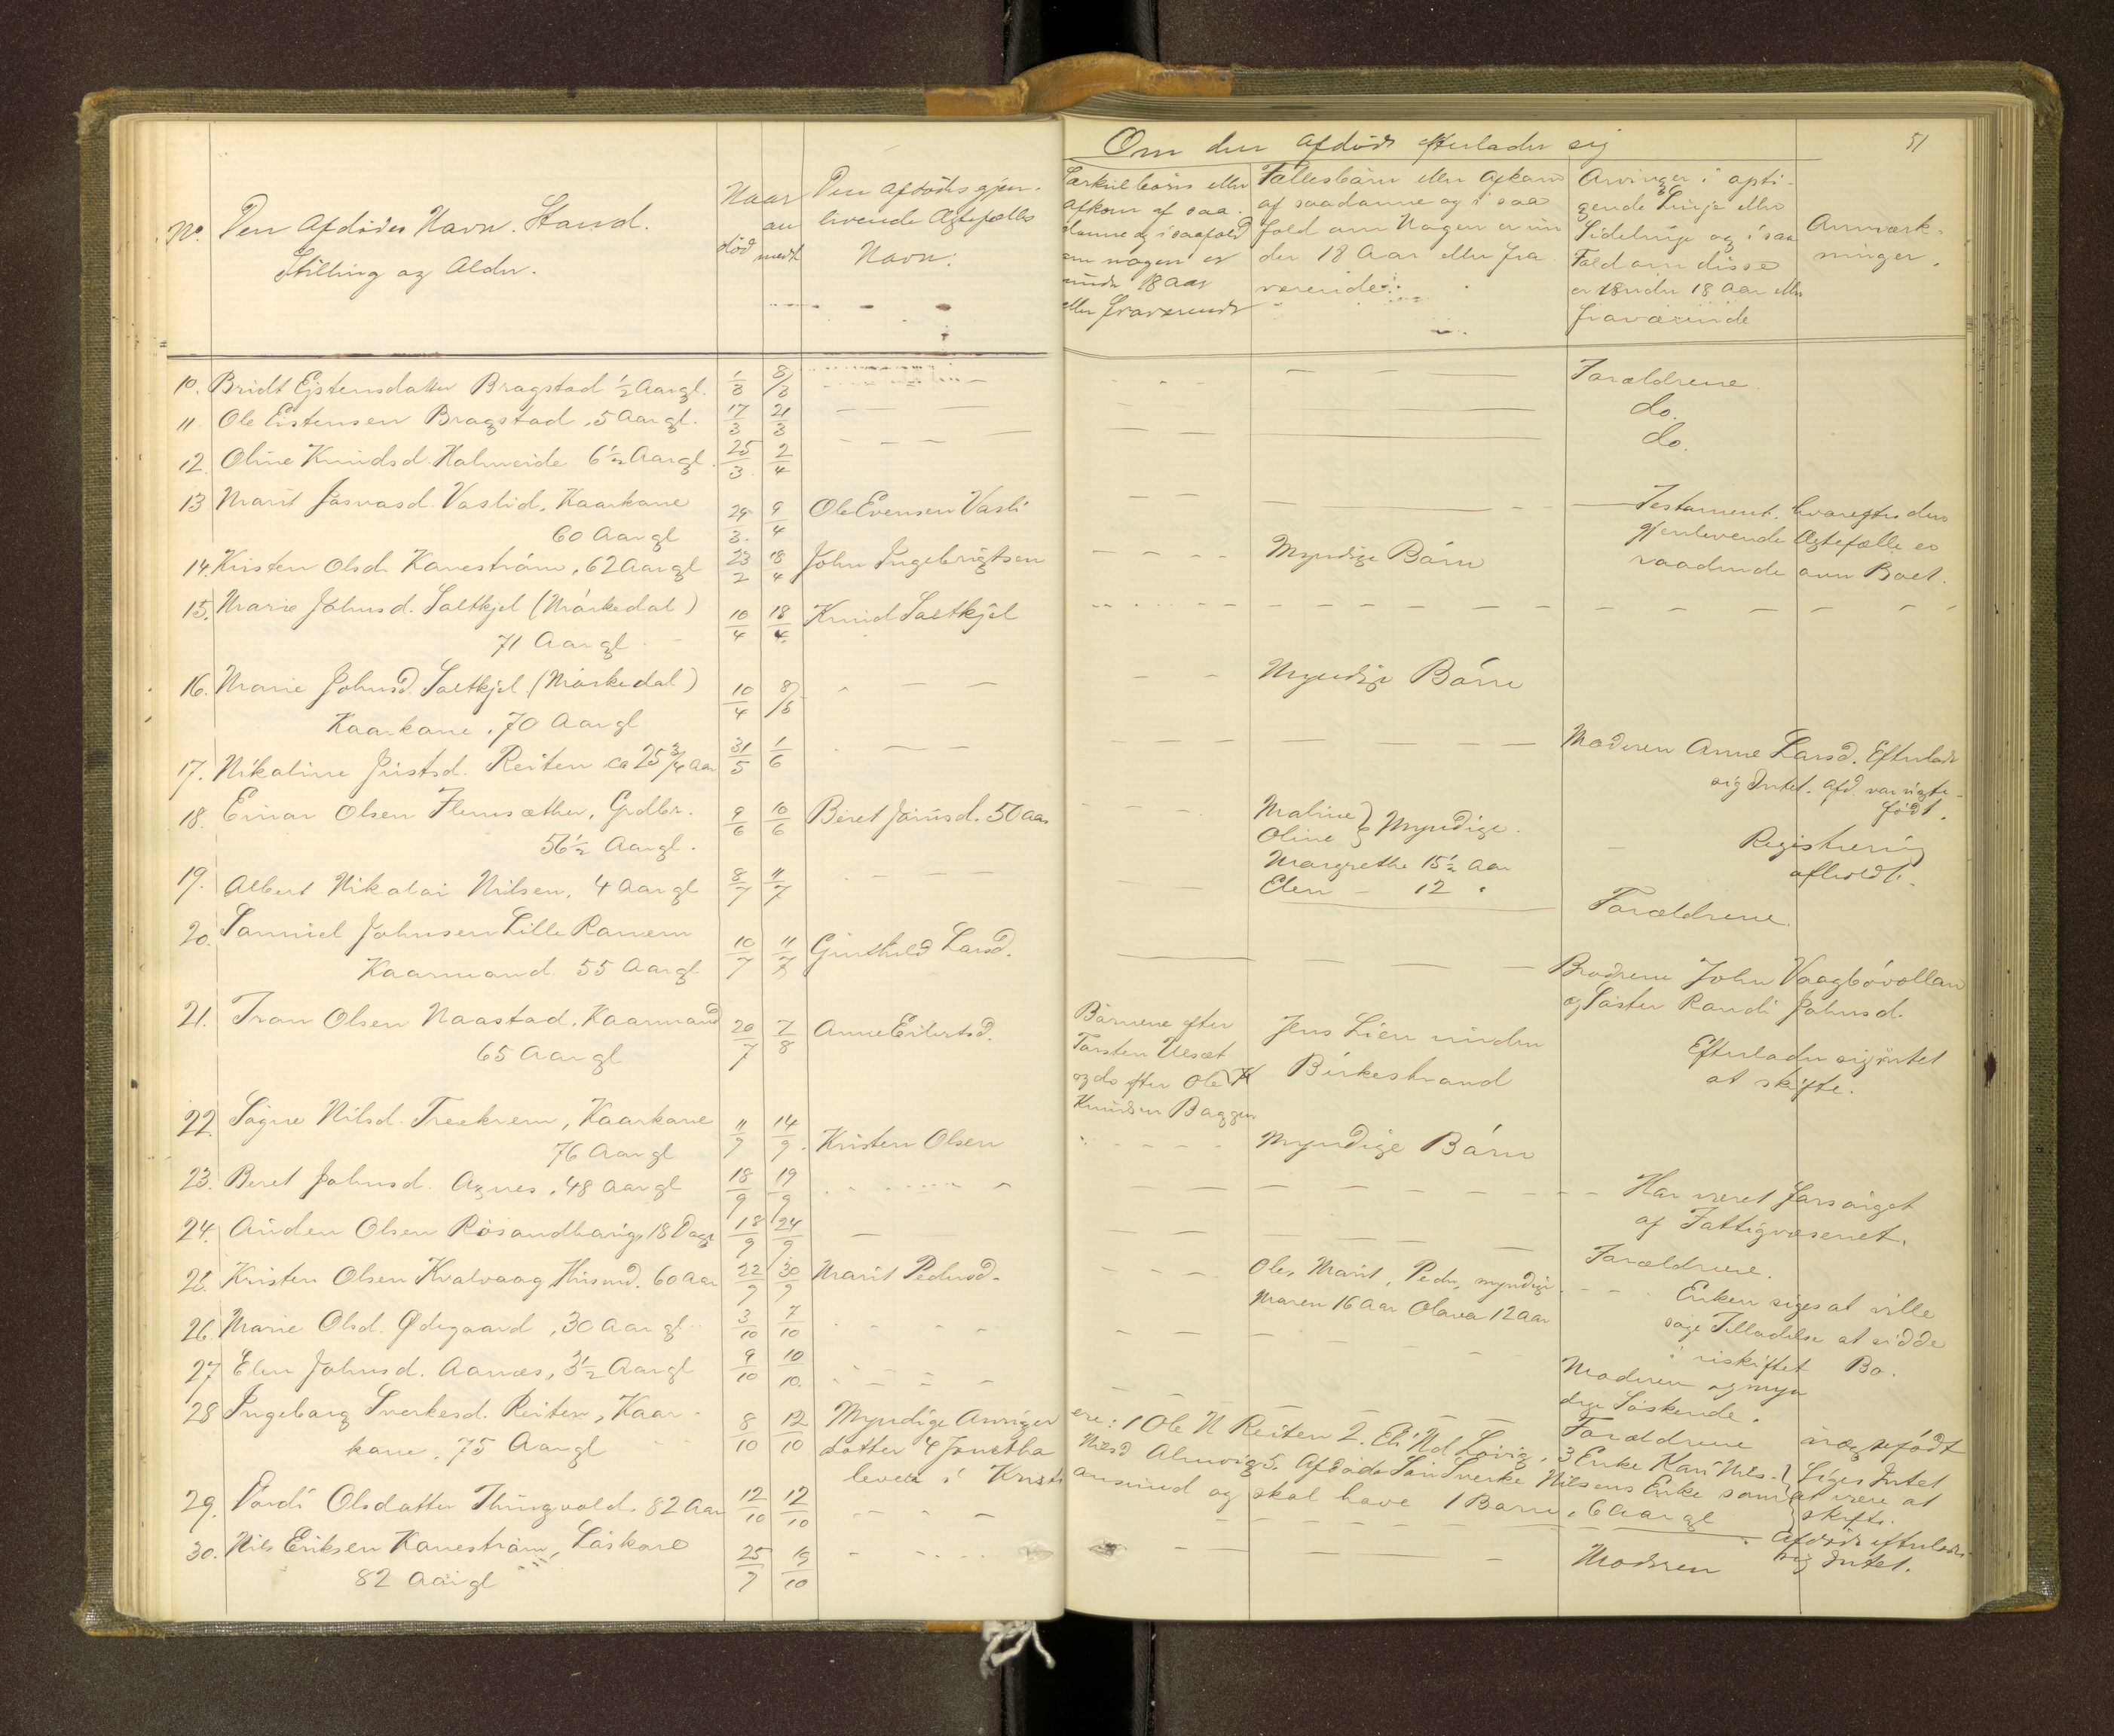 Om den Afdøde efterlader sig
51
No.
Den Afdødes Navn. Stand.
Stilling og Alder.
Naar
død
anmeldt
Den Afdødes gjen-
levende Ægtefælles
Navn:
Særkulbørn eller
Afkom af saa-
danne og i saafald
om nogen er
under 18 Aar
eller fraværende
Fællesbørn eller Afkom
af saadanne og i saa
fald om Nogen er un
der 18 Aar eller fra
værende:
Arvinger i opsti-
gende Linje eller
Sidelinje og i saa
Fald om disse
er under 18 Aar eller
fraværende
Anmærk-
ninger.
10. Bridt Ejstensdatter Bragstad ½ Aar gl. 1/3 8/3 Forældrene.
11. Ole Eistensen Bragstad, 5 Aar gl. 17/3 21/3 do.
12. Oline Knudsd. Halmeide 6½ Aar gl. 25/3 2/4 do.
13 Marit Jonasd. Vaslid, Kaarkone
60 Aar gl 29/3 9/4 Ole Evensen Vasli
Testament. hvorefter den
gjenlevende Ægtefælle er
raadende over Boet.
14. Kristen Olsd. Kanestrøm, 62 Aar gl 23/2 18/4 John Ingebrigtsen Myndige Børn
15. Marie Johnsd. Saltkjel (Mørkedal)
71 Aar gl 10/4 18/4 Knud Saltkjel
16. Marie Johnsd. Saltkjel (Mørkedal)
Kaarkone, 70 Aar gl 10/4 8/5 Myndige Børn
17. Nikoline Justsd. Reiten ca 25¾ Aar 31/5 1/6 Moderen Anne Larsd. Efterlader
sig Intet. Afd. var uægte-
født.
18. Einar Olsen Flemsæther, Grdbr.
56½ Aar gl. 9/6 10/6 Beret Jonsd. 50 Aar
Maline
Oline } Myndige.
Margrethe 15½ Aar
Elen - 12 "
Registrering
afholdt.
19. Albert Nikolai Nilsen, 4 Aar gl 8/7 11/7 Forældrene.
20. Samuel Johnsen Lille Ranem
Kaarmand. 55 Aar gl 10/7 11/7 Gunhild Larsd.
Brødrene John Vaagbøvollan
og Søster Randi Johnsd.
21. Tron Olsen Naastad, Kaarmand
65 Aar gl 20/7 7/8 Anne Eilertsd.
Børnene efter
Torsten Ulsæt
og do efter Ole K
Knudsen Bagge
Jens Lien under
Birkestrand
Efterlader sig intet
at skifte.
22. Signe Nilsd. Treekrem, Kaarkone
76 Aar gl 11/9 14/9 Kristen Olsen Myndige Børn
23. Beret Johnsd. Agnes, 48 Aar gl 18/9 19/9 Har været forsørget
af Fattigvæsenet.
24. Auden Olsen Røsandhaug, 18 Dage 18/9 24/9 Forældrene.
25. Kristen Olsen Kvalvaag Husmd. 60 Aar 22/9 30/9 Marit Pedersd.
Ole, Marit, Peder, myndige
Maren 16 Aar Olava 12 Aar
Enken siges at ville
søge Tilladelse at sidde
i uskiftet Bo.
26. Marie Olsd. Ødegaard, 30 Aar gl. 3/10 7/10 Moderen og myn
dige Søskende.
27 Elen Johnsd. Aanæs, 3½ Aar gl 9/10 10/10 Forældrene uægtefødt
28 Ingeborg Sverkesd. Reiten, Kaar-
kone, 75 Aar gl 8/10 12/10
Myndige Arvinger ere: 1 Ole N Reiten 2. Eli Nd Løvig, 3 Enke Kari Nils-
datter 4 Jonetha Nilsd Alnvig 5. Afdøde Søn Sverke Nilsens Enke som
lever i Kristiansund og skal have 1 Barn, 6 Aar gl
Siges Intet
at være at
skifte.
29. Vordi Olsdatter Thingvold, 82 Aar 12/10 12/10 Afdøde efterlader
sig Intet.
30. Nils Eriksen Kanestrøm, Løskone
82 Aar gl 25/9 19/10 Moderen